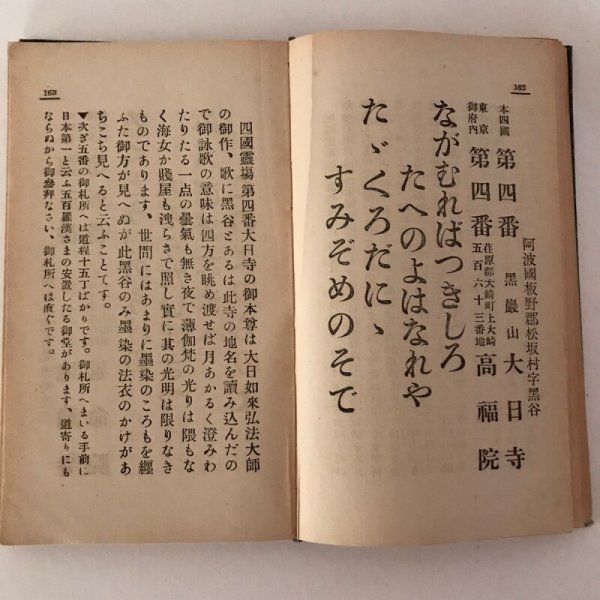 162
阿波國板野郡松坂村字黑谷
本四國 第四番 黑巖山 大日寺
東京御府內 第四番 荏原郡大崎町上大崎五百六十三番地 高福院
ながむればつきしろ
たへのよはなれや
たゞくろだにゝ
すみぞめのそで
163
四國靈塲第四番大日寺の御本尊は大日如來弘法大師
の御作、歌に黑谷とあるは此寺の地名を讀み込んだの
で御詠歌の意味は四方を眺め渡せば月あかるく澄みわ
たりたる一点の曇氣も無き夜で薄伽梵の光りは隈もな
く海女か賤屋も洩らさで照し實に其の光明は限りなき
ものであります、世間にはあまりに墨染のころもを纒
ふた御方が見へぬが此黑谷のみ墨染の法衣のかげがあ
ちこち見へると云ふことてす。
▼次ぎ五番の御札所へは道程十五丁ばかりです。御札所へまいる手前に
日本第一と云ふ五百羅漢さまの安置したる御堂があります、道寄りにも
ならぬから御參拜なさい、御札所へは直ぐです。